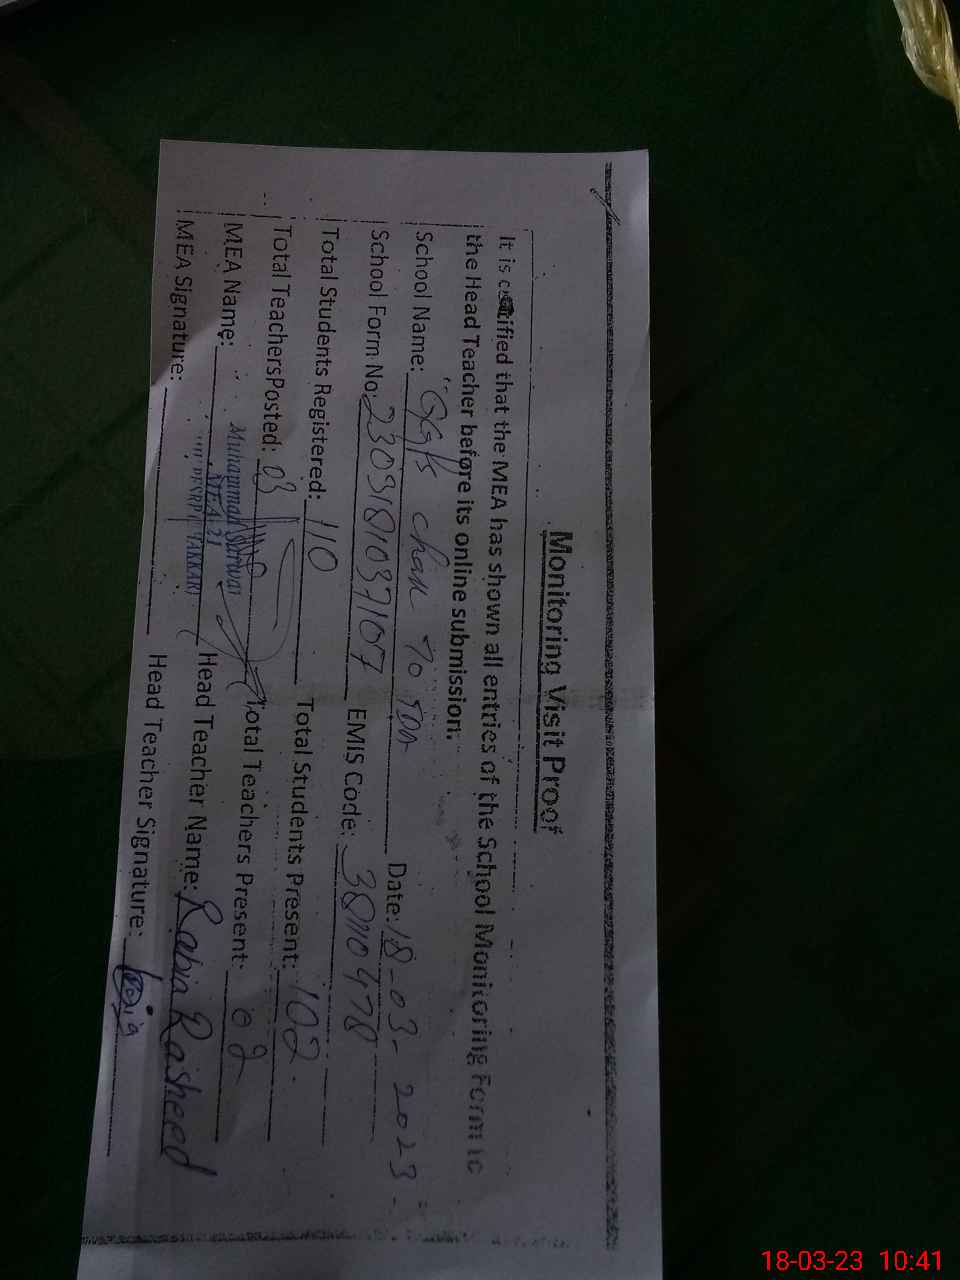 Monitoring Visit Proof
It is certified that the MEA has shown all entries of the School Monitoring Form to
the Head Teacher before its online submission.
School Name: GGPS Chak No Date: 18-03-2023
School Form No: 2303181037107 EMIS Code: 38110478
Total Students Registered: 110 Total Students Present: 102
Total TeachersPosted: 03 Total Teachers Present: 02
MEA Name: Muhammad Sarwar Head Teacher Name: Rabia Rasheed
MEA 21
MEA Signature: Head Teacher Signature: Rabia
18-03-23 10:41